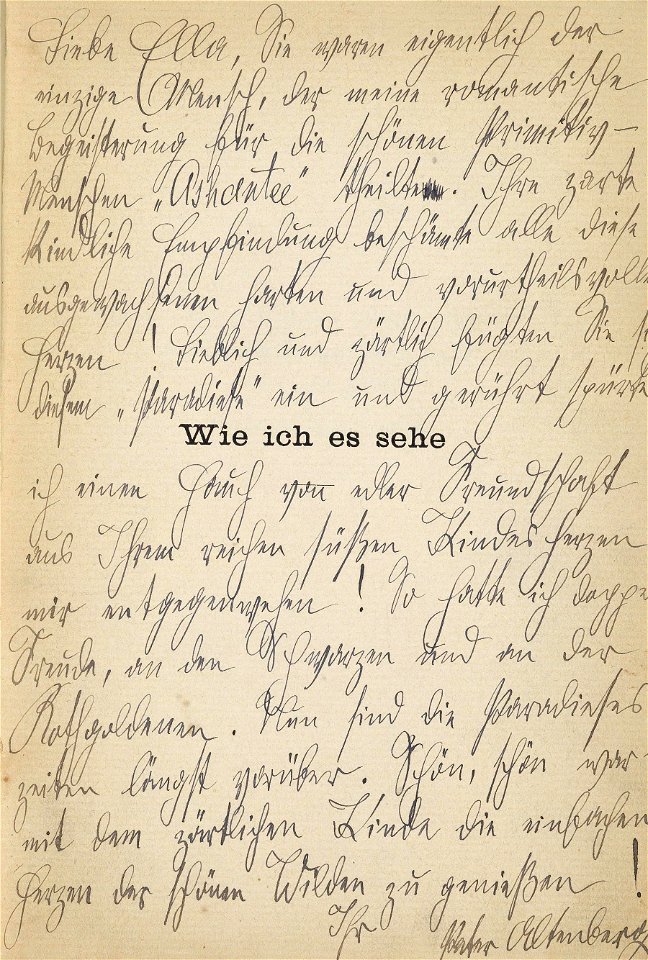 Liebe Ella, Sie waren eigentlich der
einzige Mensch, der meine romantische
Begeisterung für die schönen Primitiv-
Menschen „Ashantee" theilte. Ihre zarte
kindliche Empfindung beschämte alle diese
ausgewachsenen harten und vorurtheilsvolle
Herzen! Lieblich und zärtlich fügten Sie s
diesem „Paradiese" ein und gerührt spürte
Wie ich es sehe
ich einen Hauch von edler Freundschaft
aus Ihrem reichen süßen Kindesherzen
mir entgegenwehen! So hatte ich doppe
Freude, an den Schwarzen und an der
Rothgoldenen. Nun sind die Paradieses
zeiten längst vorüber. Schön, schön war-
mit dem zärtlichen Kinde die einfachen
Herzen der schönen Wilden zu genießen!
Ihr
Peter Altenberg